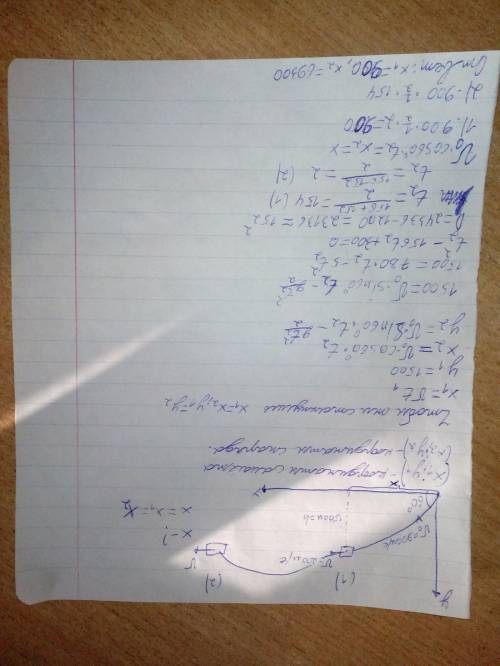 y
(1)
(2)
V=200м/с
V
V₀=900м/с
1500м=h
60°
x
x
x - ?
x = x₁ = x₂
(x₁; y₁) - координаты самолёта
(x₂; y₂) - координаты снаряда.
Чтобы они столкнулись x₁=x₂; y₁=y₂
x₁ = Vt₁
y₁ = 1500
x₂ = V₀·cos60°·t₂
y₂ = V₀·sin60°·t₂ - gt₂²/2
1500 = V₀·sin60°·t₂ - gt₂²/2
1500 = 780·t₂ - 5t₂²
t₂² - 156t₂ + 300 = 0
D = 24336 - 1200 = 23136 ≈ 152²
t₂ = (156+152)/2 = 154 (1)
t₂ = (156-152)/2 = 2 (2)
V₀·cos60°·t₂ = x₂ = x
1) 900·1/2·2 = 900
2) 900·1/2·154
Ответ: x₁ = 900, x₂ = 69300